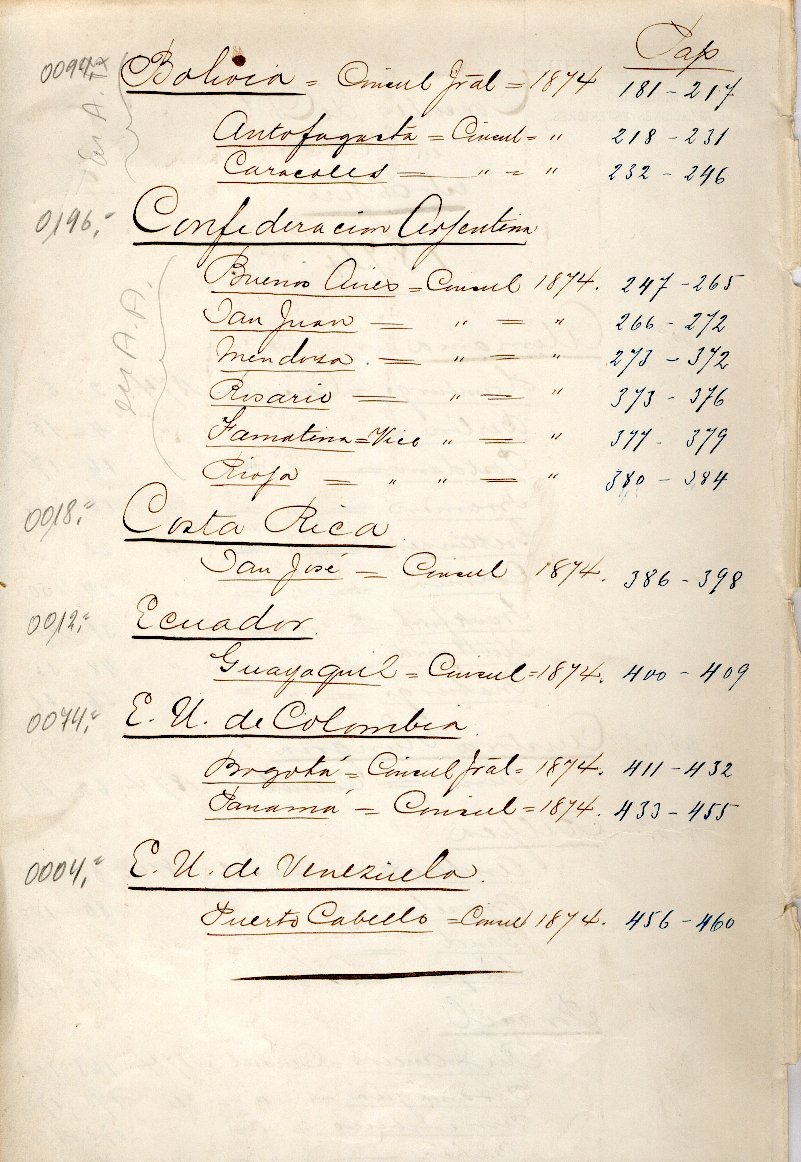 Pap
0094,= Bolivia = Cónsul Jral = 1874 181 - 217
Antofagasta = Cónsul = " 218 - 231
Caracoles = " = " 232 - 246
0196,= Confederacion Arjentina
Buenos Aires = Consul 1874. 247 - 265
San Juan = " = " 266 - 272
Mendosa = " = " 273 - 372
en A.A.
Rosario = " = " 373 - 376
Famatina = Vice " = " 377 - 379
Rioja = " " = " 380 - 384
0018,= Costa Rica
San José = Cónsul 1874. 386 - 398
0012,= Ecuador.
Guayaquil = Cónsul = 1874. 400 - 409
0074,= E. U. de Colombia.
Bogotá = Cónsul Jral = 1874. 411 - 432
Panamá = Cónsul = 1874. 433 - 455
0004,= E. U. de Venezuela.
Puerto Cabello = Consul 1874. 456 - 460